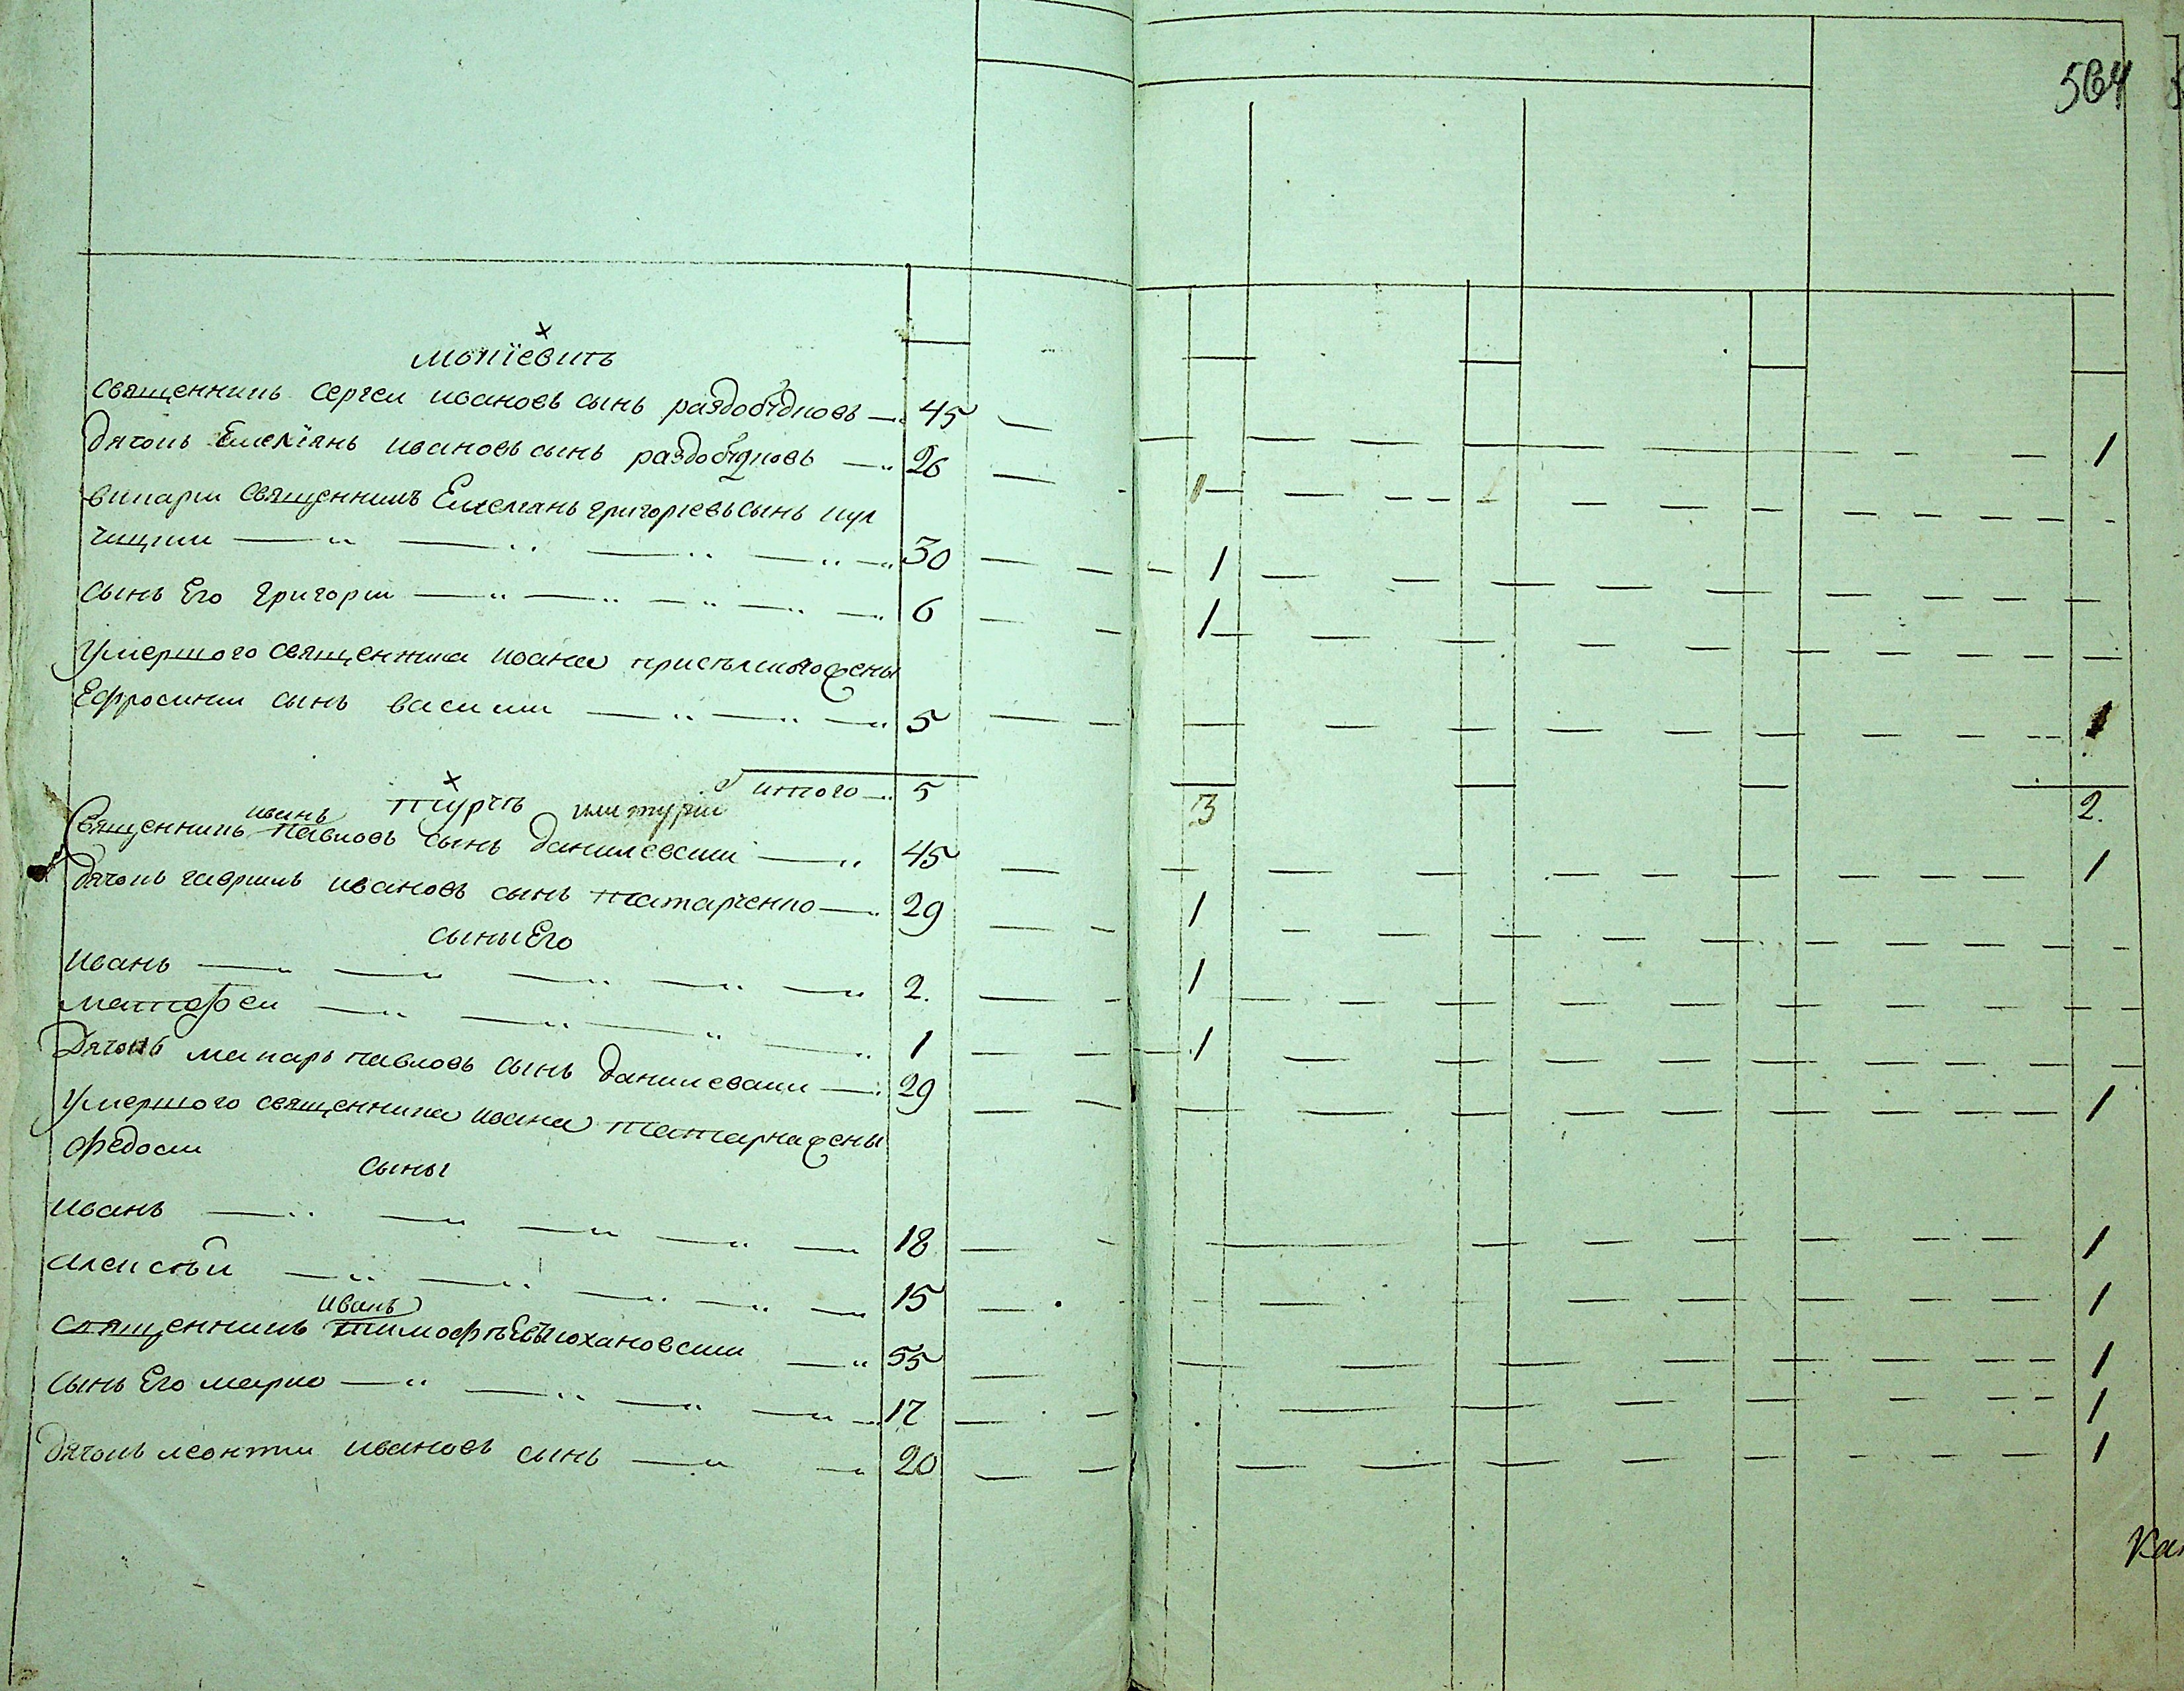 564
х
Мотïевитъ
Священникъ Сергеи ивановъ сынъ раздобѣдковъ 45 1
Дячокъ Емелïянъ ивановъ сынъ раздобѣдковъ 26 1
викарии Священникъ Емелиянъ григориевъ сынъ кул
чицкии 30 1
сынъ Его Григории 6 1
Умершого священника ивана жены
Ефросинии сынъ василии 5 1
итого 5 3 2.
х
Турчъ или турки
иванъ
Священникъ павловъ сынъ данилевскии 45 1
Дячокъ гавриилъ ивановъ сынъ татарченко 29 1
сыны Его
иванъ 2. 1
матофеи 1 1
Дячокъ макаръ павловъ сынъ данилевскии 29 1
Умершого священника ивана татарка жены
федосии
сыны
иванъ 18 1
алексѣй 15 1
иванъ
священникъ тимофѣевъ 55 1
сынъ Его марко 17 1
дячокъ леонтии ивановъ сынъ 20 1